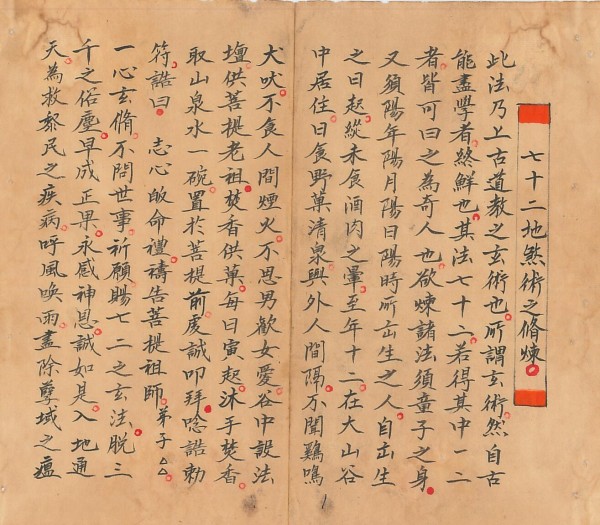 七十二地煞術之脩煉
此法乃上古道教之玄術也所謂玄術然自古
能盡學者終鮮也其法七十二若得其中一二
者皆可曰之為奇人也欲煉諸法須童子之身
又須陽年陽月陽日陽時所出生之人自出生
之日起縱未食酒肉之暈至年十二在大山谷
中居住日食野菓清泉與外人間隔不聞鷄鳴
犬吠不食人間煙火不思男歡女愛谷中設法
壇供菩提老祖枝香供菓每日寅起沐手焚香
取山泉水一碗置於菩提前虔誠叩拜唸誥勅
符誥曰 志心皈命禮禱告菩提祖師弟子△△
一心玄脩不問世事祈願賜七二之玄法脫三
千之俗塵早成正果永感神恩誠如是入地通
天為救黎民之疾病呼風喚雨盡除孽域之瘟
1